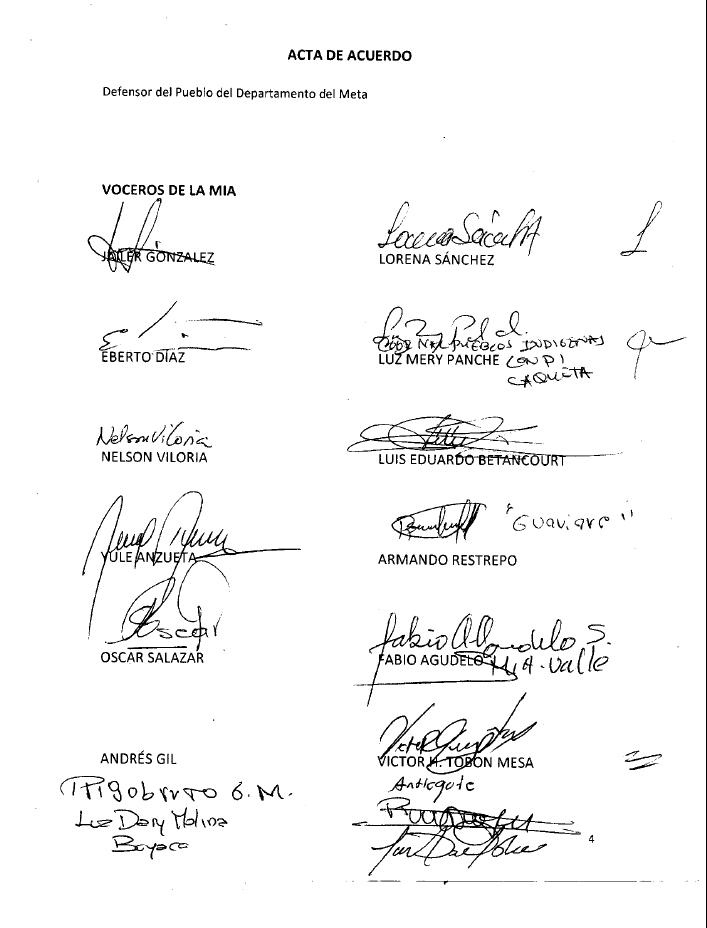 ACTA DE ACUERDO
Defensor del Pueblo del Departamento del Meta
VOCEROS DE LA MIA
JAILER GONZALEZ
LORENA SÁNCHEZ
EBERTO DÍAZ
PUEBLOS INDIGENAS
LUZ MERY PANCHE CONPI
CAQUETA
Nelson Viloria
NELSON VILORIA
LUIS EDUARDO BETANCOURT
"Guaviare"
YULE ANZUETA
ARMANDO RESTREPO
Oscar
OSCAR SALAZAR
Fabio Agudelo S.
FABIO AGUDELO MIA-Valle
ANDRÉS GIL
VICTOR H. TOBÓN MESA
Rigoberto G.M.
Luz Dary Molina
Boyaca
4